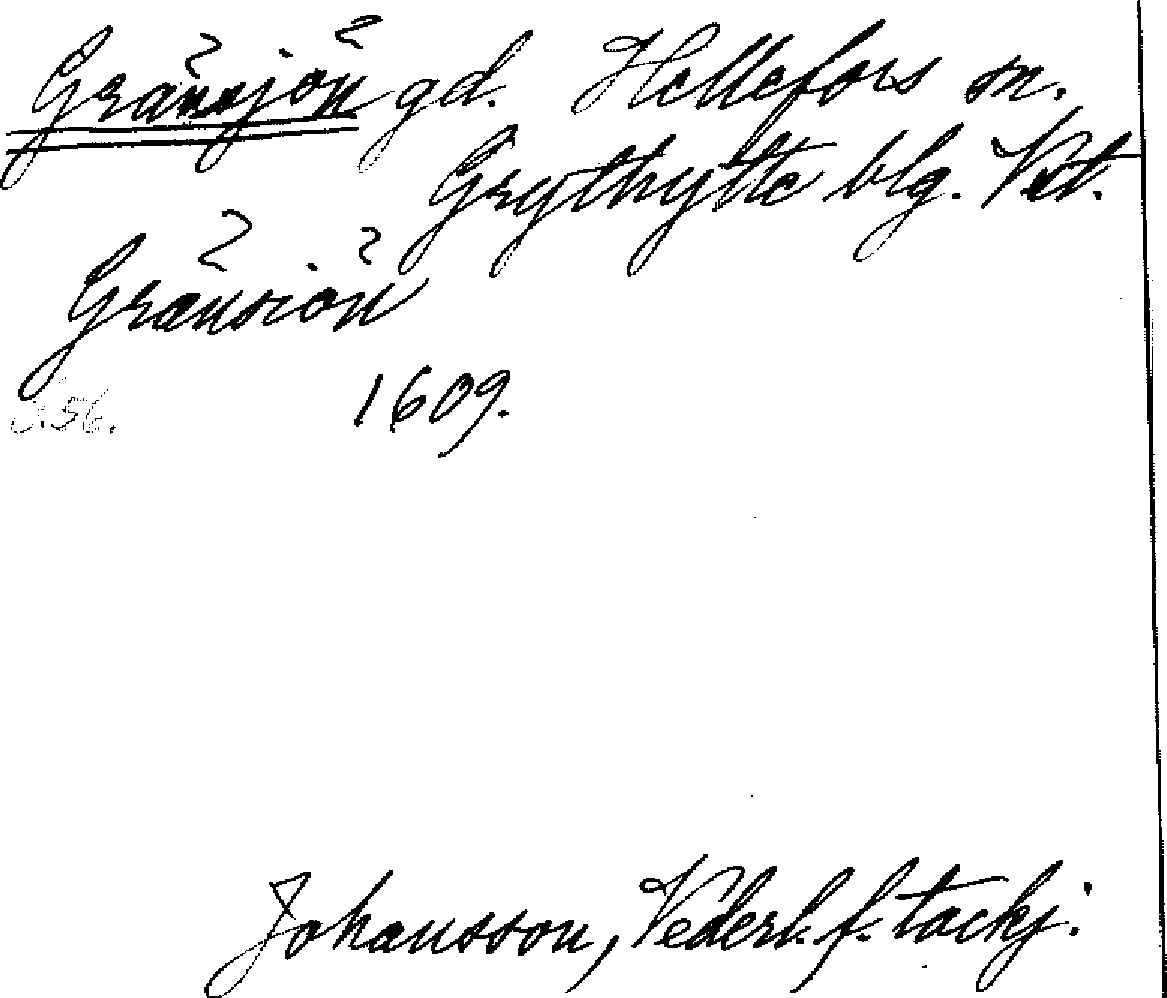 Gränsjön gd. Hellefors sn.
Grythytte blg. Vstm.
Gränsiön
1609.
Johansson, Vederl. f. tackj: